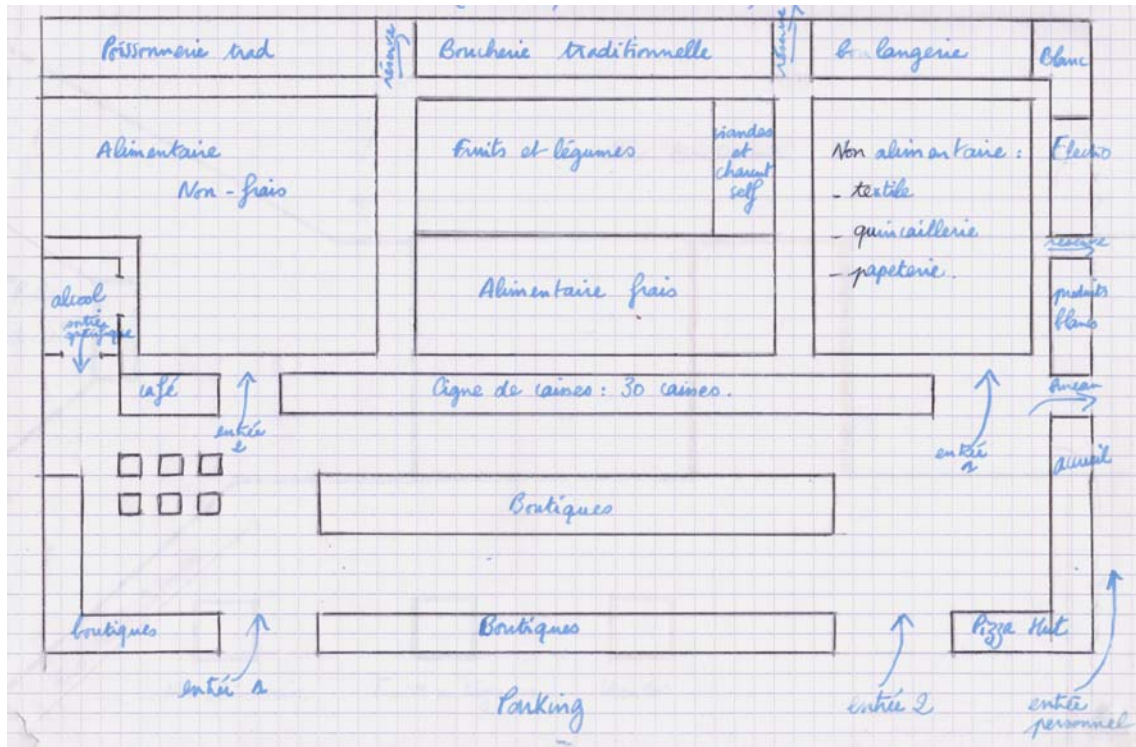 Poissonnerie trad
réserve
Boucherie traditionnelle
réserve
boulangerie
Blanc
Alimentaire
Non-frais
Fruits et légumes
viandes
et
charcut
self
Non alimentaire :
- textile
- quincaillerie
- papeterie.
Electro
réserve
alcool
entrée
spécifique
Alimentaire frais
produits
blancs
café
Ligne de caisses : 30 caisses.
Bureau
entrée
2
entrée
1
accueil
Boutiques
boutiques
Boutiques
Pizza Hut
entrée 1
Parking
entrée 2
entrée
personnel